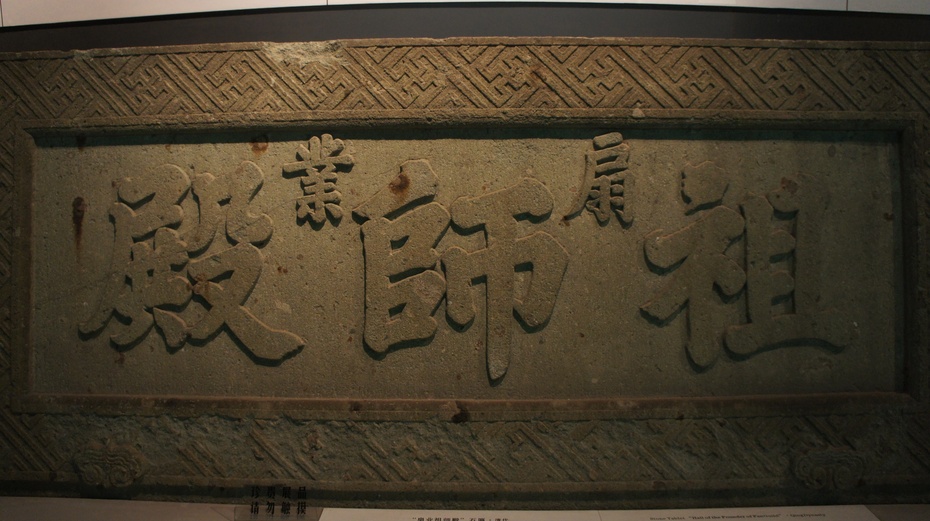 祖師殿
扇業